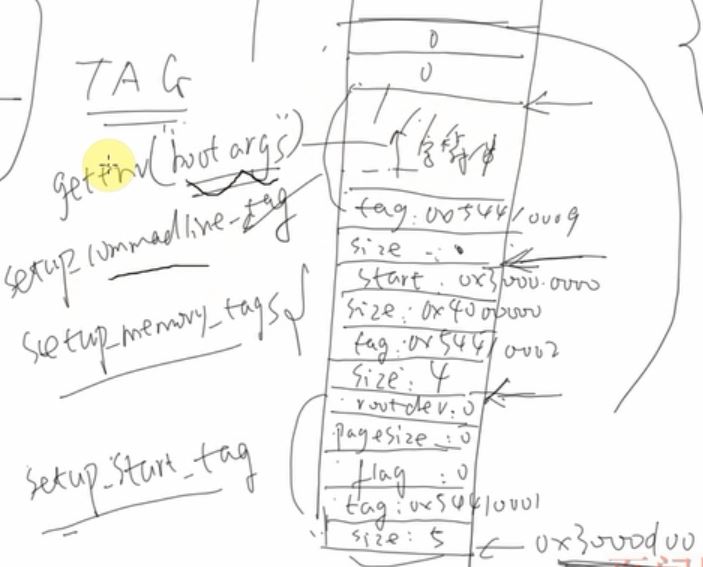 TAG
getenv("boot args")
setup_commadline_tag
setup_memory_tags
setup_start_tag
0
0
字符串
tag: 0x54410009
size :
start : 0x3000.0000
size: 0x4000000
tag: 0x54410002
size: 4
rootdev: 0
pagesize : 0
flag : 0
tag: 0x54410001
size: 5
0x30000d00